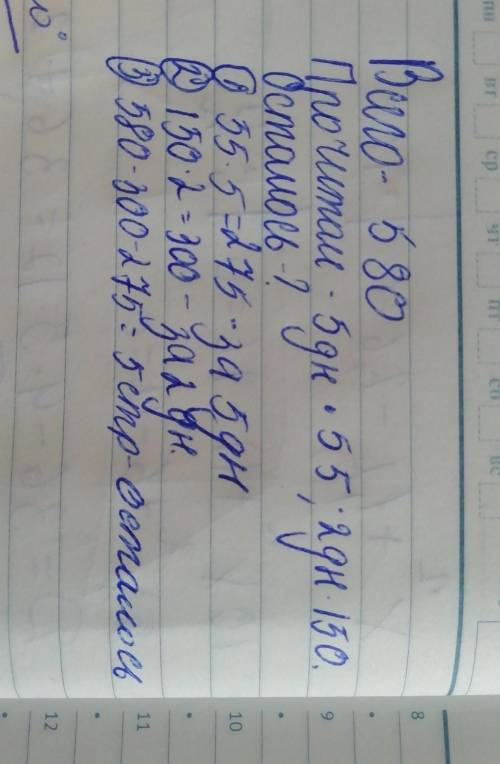 Всего - 580
Прочитал - 5дн · 55, 2дн · 150.
Осталось - ?
1) 55 · 5 = 275 - за 5дн
2) 150 · 2 = 300 - за 2дн.
3) 580 - 300 - 275 = 5стр - осталось
пн
вт
ср
чт
пт
сб
вс
8
9
10
11
12